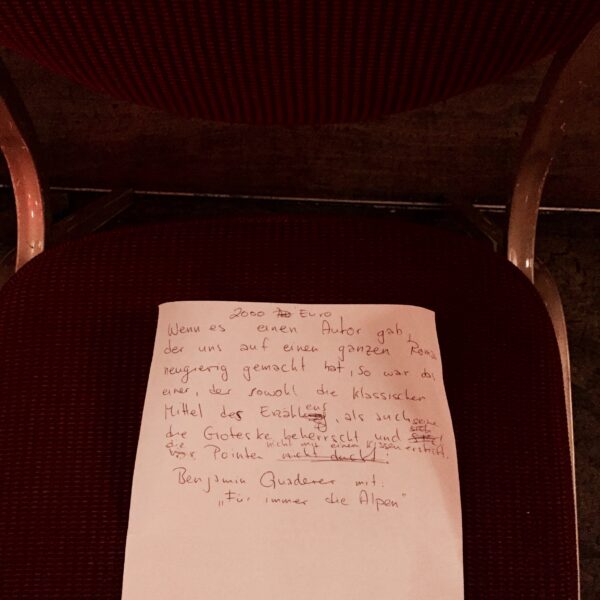 2000 Euro
Wenn es einen Autor gab,
der uns auf einen ganzen Roman
neugierig gemacht hat, so war das
einer, der sowohl die klassischen
Mittel des Erzählens, als auch
die Groteske beherrscht und seine
Pointen nicht mit einem Kissen erstickt.
Benjamin Quaderer mit:
„Für immer die Alpen“